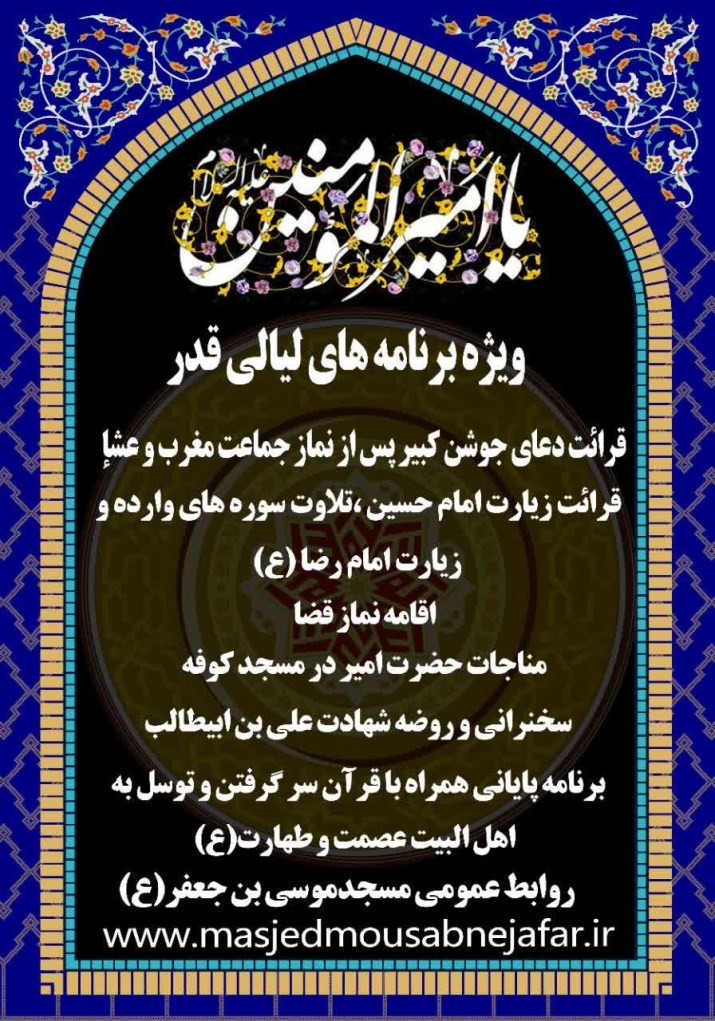 یا امیرالمؤمنین علیه السلام
ویژه برنامه های لیالی قدر
قرائت دعای جوشن کبیر پس از نماز جماعت مغرب و عشاإ
قرائت زیارت امام حسین ،تلاوت سوره های وارده و
زیارت امام رضا (ع)
اقامه نماز قضا
مناجات حضرت امیر در مسجد کوفه
سخنرانی و روضه شهادت علی بن ابیطالب
برنامه پایانی همراه با قرآن سر گرفتن و توسل به
اهل البیت عصمت و طهارت(ع)
روابط عمومی مسجدموسی بن جعفر(ع)
www.masjedmousabnejafar.ir